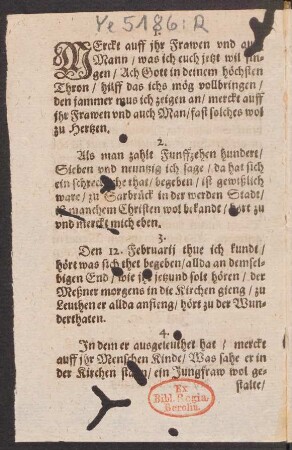 Ye 5186:R
1.
MErckt auff jhr Frawen vnd
Mann / was ich euch jetzt wil sin-
gen / Ach Gott in deinem höchsten
Thron / hilff das ichs mög vollbringen /
den jammer mus ich zeigen an / merckt auff
jhr Frawen vnd auch Man / fast solches wol
zu Hertzen.
2.
Als man zahlt Funffzehen hundert /
Sieben vnd neuntzig ich sage / da hat sich
ein schreckliche that / begeben / ist gewißlich
ware / zu Sarbrück in der werden Stadt /
manchem Christen wol bekandt / hört zu
vnd merckt mich eben.
3.
Den 12. Februarij thue ich kundt /
hört was sich thet begeben / allda an demsel-
bigen End / wie jr jetzund solt hören / der
Meßner morgens in die Kirchen gieng / zu
Leuthen er allda anfieng / hört zu der Wun-
derthaten.
4.
In dem er ausgeleuthet hat / merckt
auff jhr Menschen Kinde / Was sahe er in
der Kirchen stahn / ein Jungfraw wol ge-
stalte /
Ex
Bibl. Regia
Berolin.